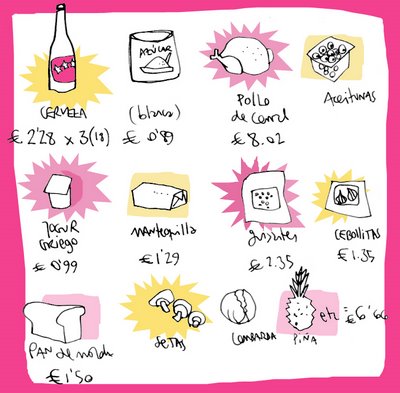 AZÚCAR
CERVEZA
€ 2'28 x 3(18)
(blanco)
€ 0'89
POLLO
de corral
€ 8.02
ACEITUNAS
YOGUR
GRIEGO
€ 0'99
MANTEQUILLA
€ 1'29
guisantes
€ 2.35
CEBOLLITAS
€ 1.35
PAN de molde
€ 1'50
SETAS
LOMBARDA
PIÑA
€ 6'66